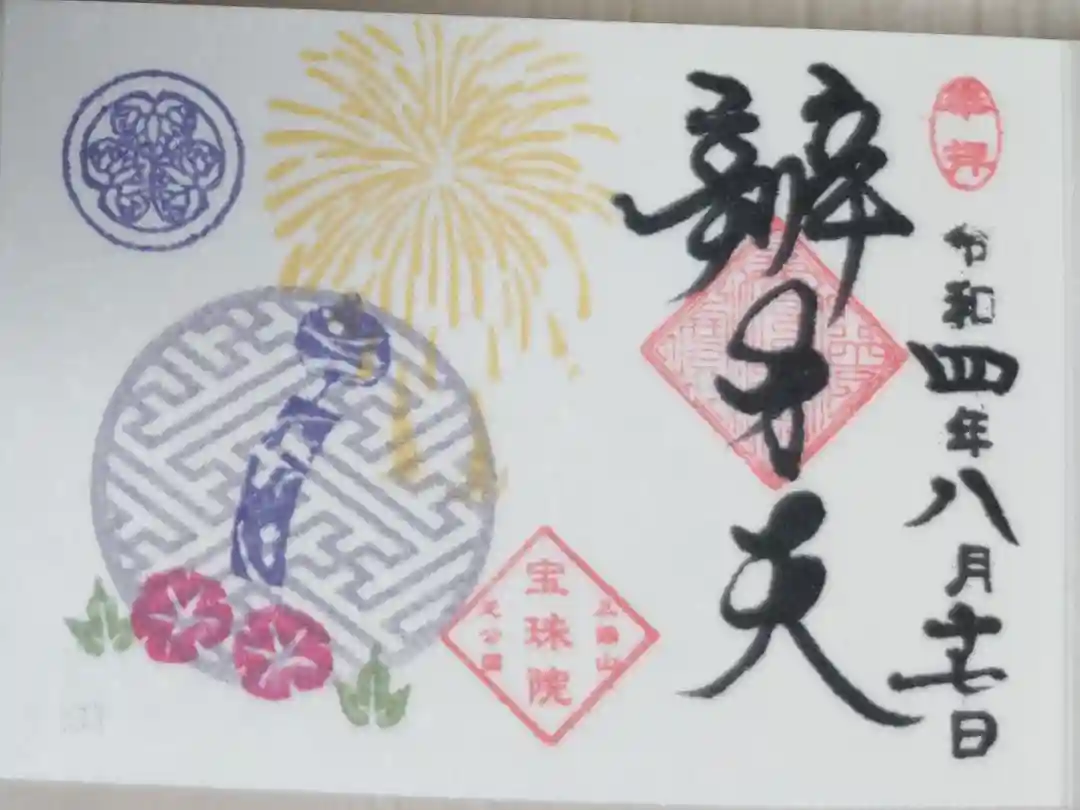 奉拝
令和四年八月十七日
辨才天
三縁山
宝珠院
芝公園